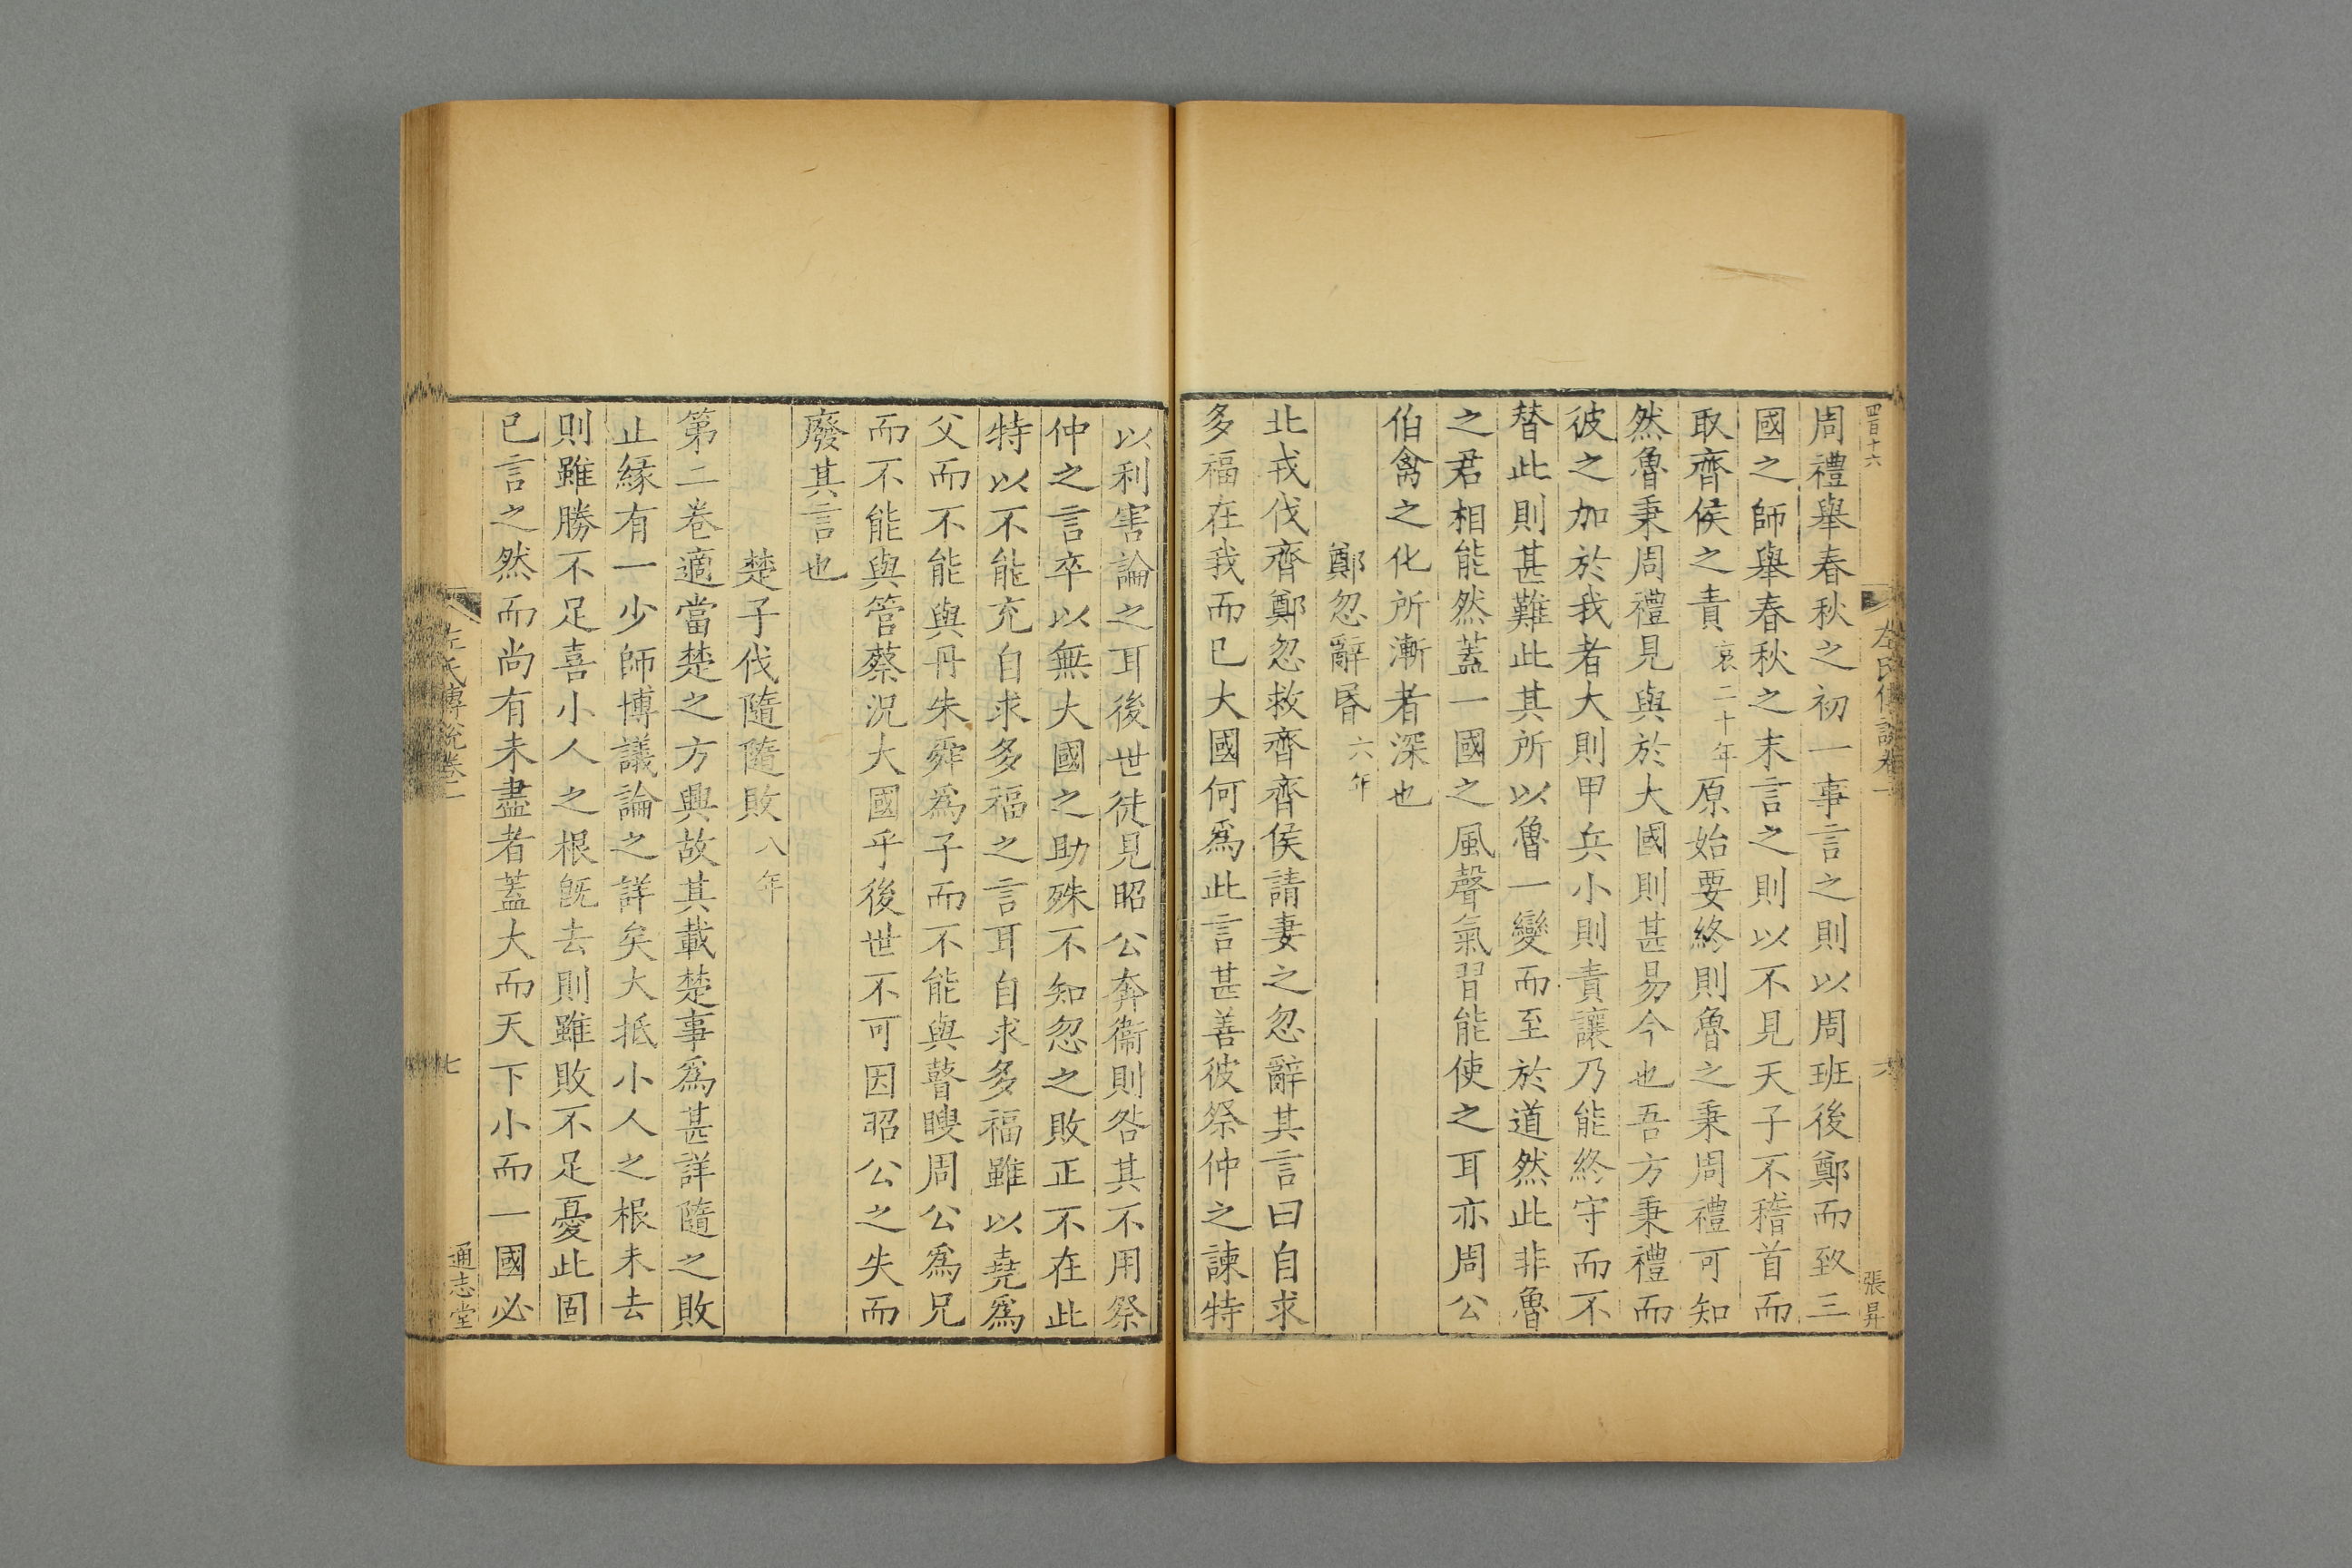 四百十六
左氏傳說卷一
六
張昇
周禮舉春秋之初一事言之則以周班後鄭而致三
國之師舉春秋之末言之則以不見天子不稽首而
取齊侯之責哀二十年原始要終則魯之秉周禮可知
然魯秉周禮見與於大國則甚易今也吾方秉禮而
彼之加於我者大則甲兵小則責讓乃能終守而不
替此則甚難此其所以魯一變而至於道然此非魯
之君相能然蓋一國之風聲氣習能使之耳亦周公
伯禽之化所漸者深也
鄭忽辭昏六年
北戎伐齊鄭忽救齊齊侯請妻之忽辭其言曰自求
多福在我而已大國何爲此言甚善彼祭仲之諫特
以利害論之耳後世徒見昭公奔衞則咎其不用祭
仲之言卒以無大國之助殊不知忽之敗正不在此
特以不能充自求多福之言耳自求多福雖以堯爲
父而不能與丹朱舜爲子而不能與瞽瞍周公爲兄
而不能與管蔡況大國乎後世不可因昭公之失而
廢其言也
楚子伐隨隨敗八年
第二卷適當楚之方興故其載楚事爲甚詳隨之敗
止緣有一少師博議論之詳矣大抵小人之根未去
則雖勝不足喜小人之根旣去則雖敗不足憂此固
已言之然而尚有未盡者蓋大而天下小而一國必
左氏傳說卷一
七
通志堂